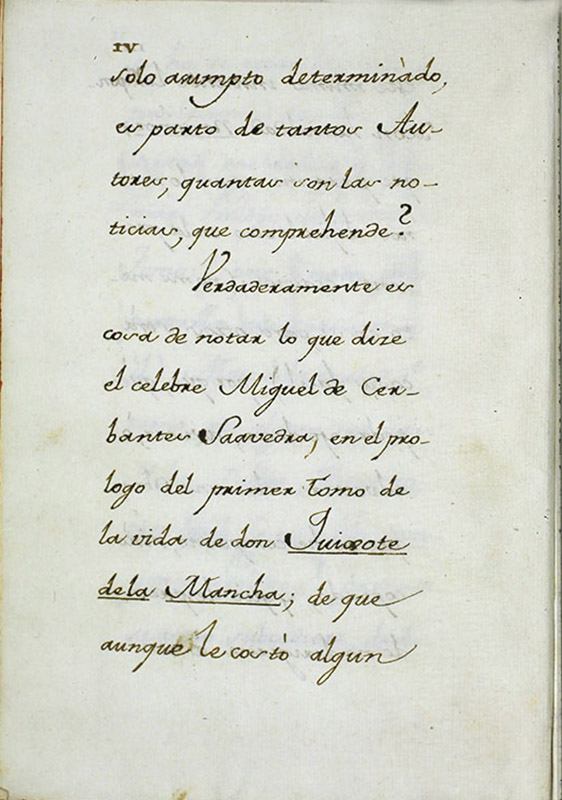 IV
solo asumpto determinàdo,
es parto de tantos Au-
tores, quantas son las no-
ticias, que comprehende?
Verdaderamente es
cosa de notar lo que dize
el celebre Miguel de Cer-
bantes Saavedra, en el pro-
logo del primer Tomo de
la vida de don Quixote
dela Mancha; de que
aunque le costò algun